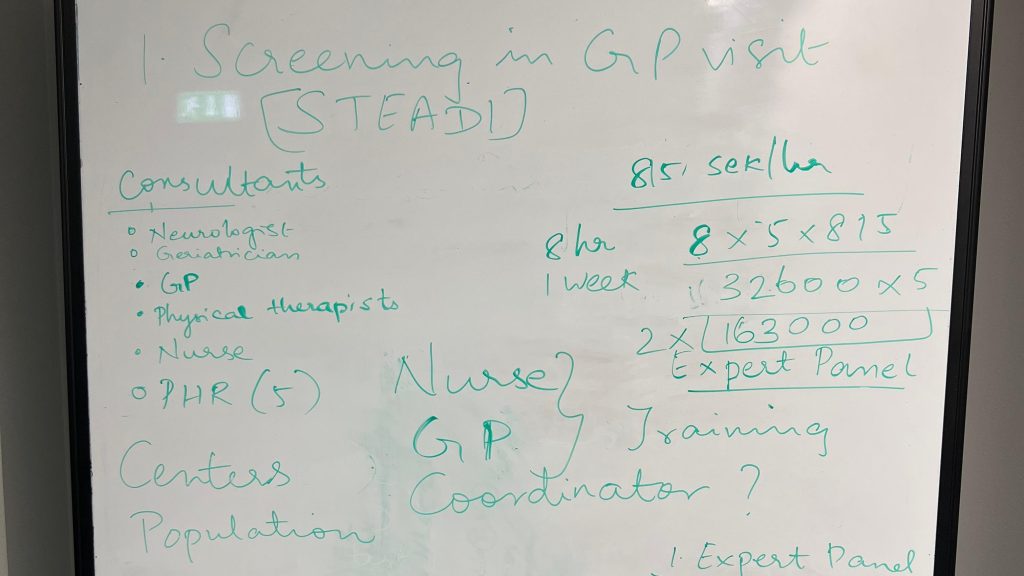 1. Screening in GP visit
[STEADI]
Consultants
Neurologist
Geriatrician
GP
Physical therapists
Nurse
PHR (5)
Centers
Population
815, sek/hr
8 hr 8 x 5 x 815
1 week 32600 x 5
2 x 163000
Expert Panel
Nurse
GP
Training
Coordinator ?
1. Expert Panel